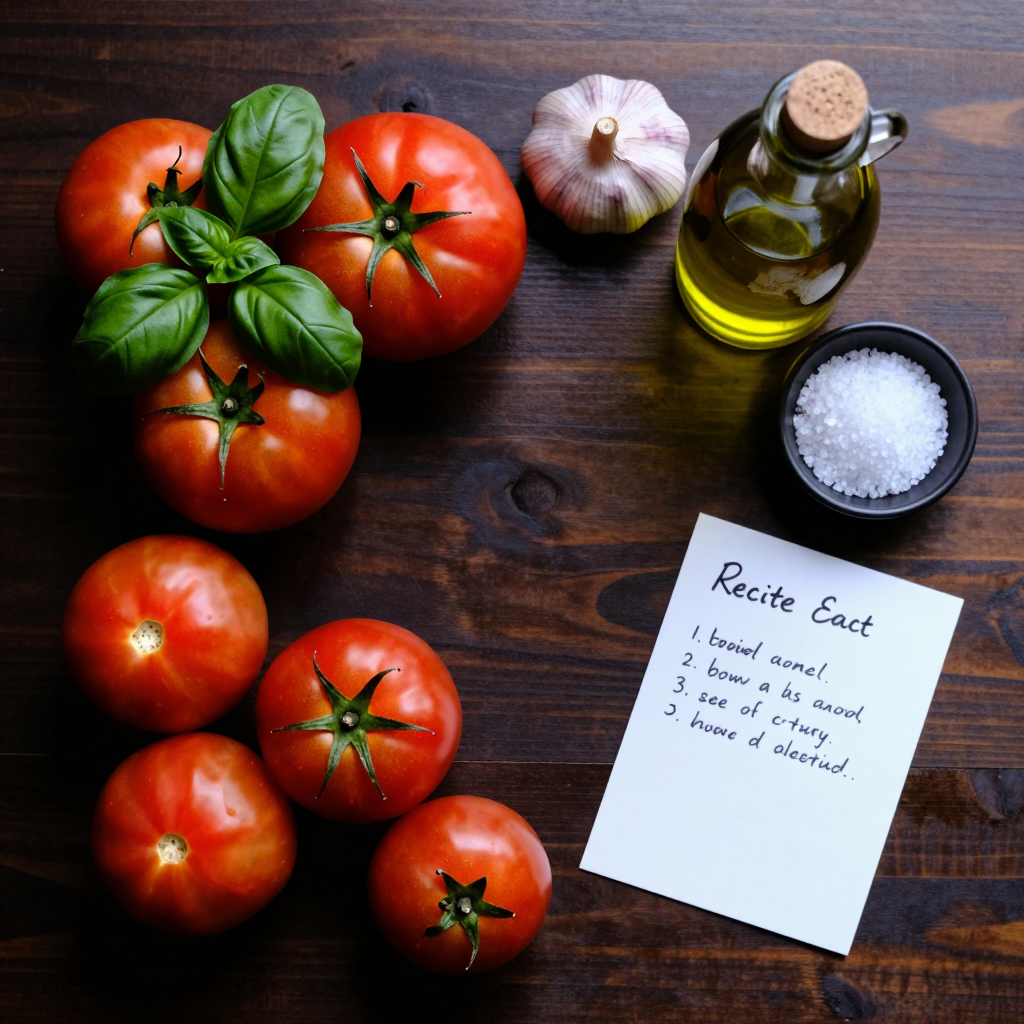 Recite Eact
1. booid aonel.
2. bow a bs anod,
3. see of crtury.
3. howe d aleetid..